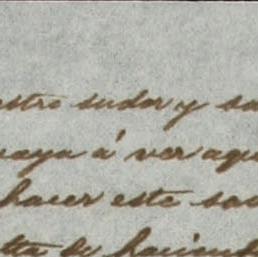 estro sudor y sa
vaya á ver aqu
hacer este sac
lta de haciend